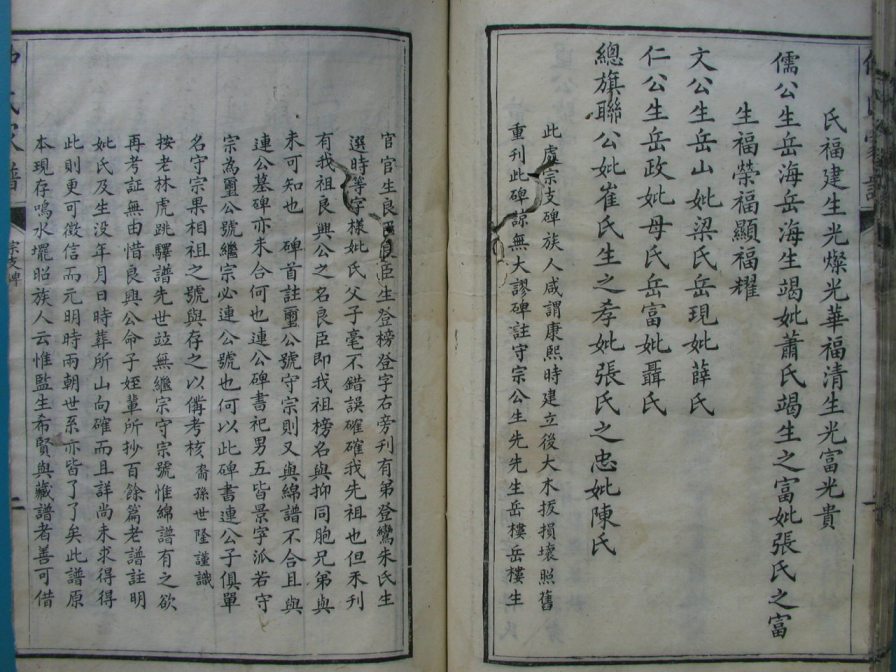 氏福建生光燦光華福清生光富光貴
儒公生岳海岳海生竭妣蕭氏竭生之富妣張氏之富
生福榮福顯福耀
文公生岳山妣梁氏岳現妣薛氏
仁公生岳政妣母氏岳富妣聶氏
總旗聯公妣崔氏生之孝妣張氏之忠妣陳氏
此處宗支碑族人咸謂康熙時建立後大木拔損壞照舊
重刊此碑諒無大謬碑註守宗公生先先生岳樓岳樓生
官官生良臣良臣生登榜登字右旁刊有弟登鸞朱氏生
選時等字樣妣氏父子毫不錯誤確確我先祖也但未刊
有我祖良興公之名良臣即我祖榜名與抑同胞兄弟與
未可知也碑首註璽公號守宗則又與綿譜不合且與
連公墓碑亦未合何也連公碑書祀男五皆景字派若守
宗為璽公號繼宗必連公號也何以此碑書連公子俱單
名守宗果相祖之號與存之以備考核裔孫世隆謹識
按老林虎跳驛譜先世竝無繼宗守宗號惟綿譜有之欲
再考証無由惜良興公命子姪輩所抄百餘篇老譜註明
妣氏及生没年月日時葬所山向確而且詳尚未求得得
此則更可徵信而元明時兩朝世系亦皆了了矣此譜原
本現存鳴水壩昭族人云惟監生希賢與藏譜者善可借
氏家譜
宗支碑
二